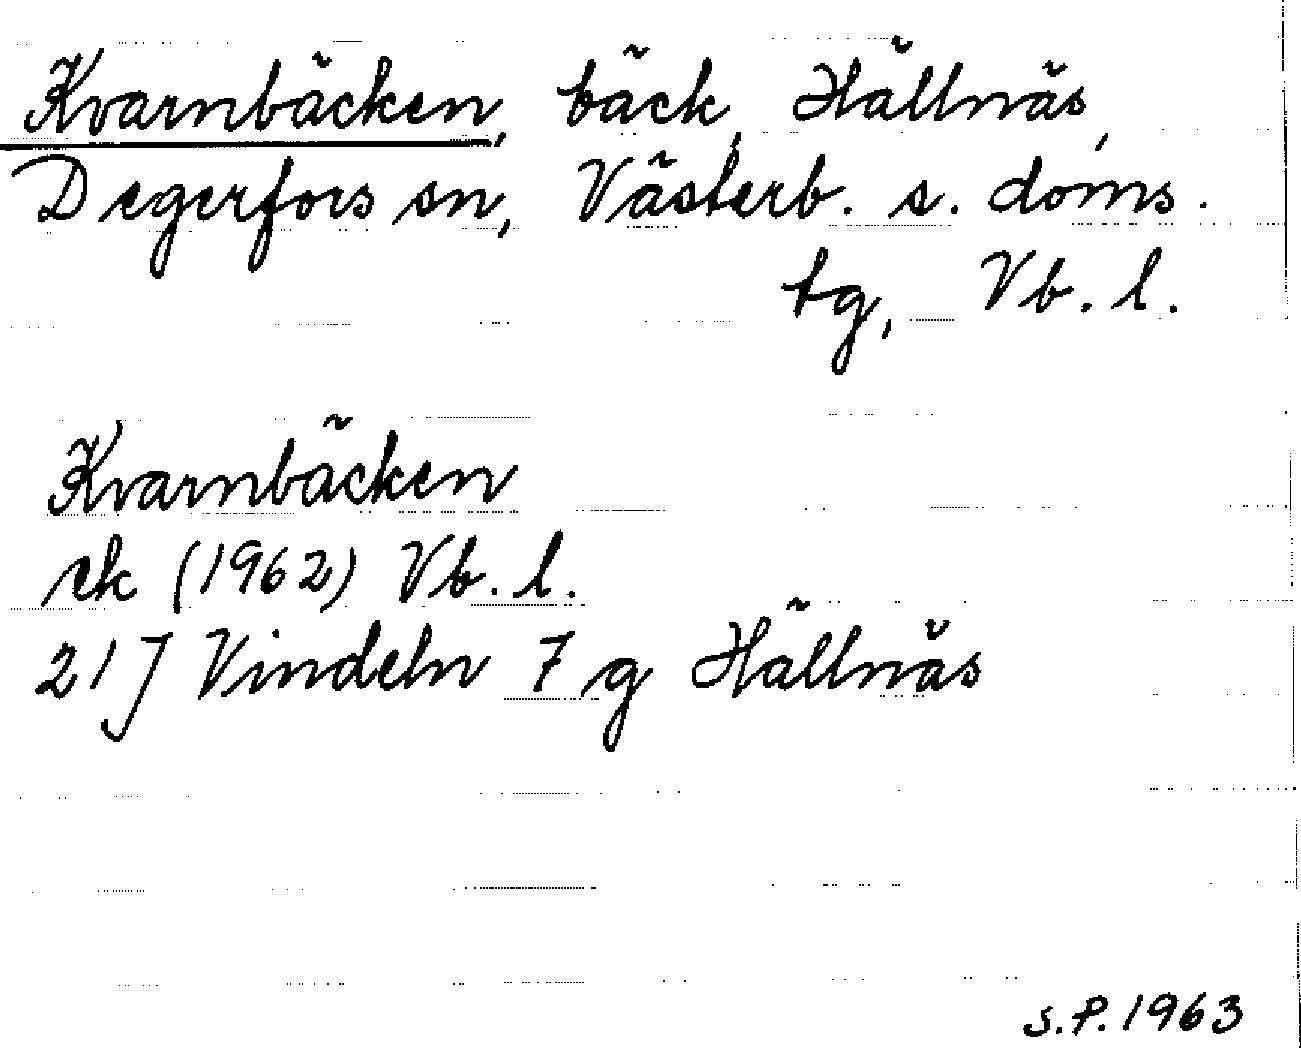 Kvarnbäcken, bäck, Hällnäs,
Degerfors sn, Västerb. s. doms.
tg, Vb. l.
Kvarnbäcken
ek (1962) Vb. l.
21 J Vindeln 7 g Hällnäs
S.P. 1963